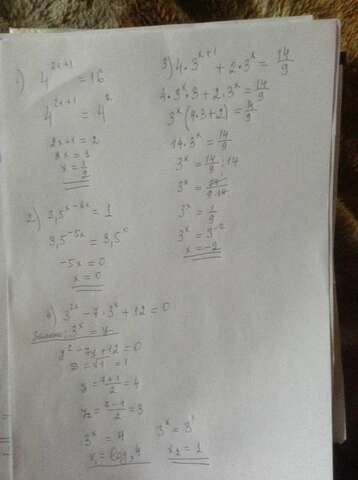 1) 4^{2x+1} = 16
4^{2x+1} = 4^2
2x+1 = 2
2x = 1
x = \frac{1}{2}
2) 3,5^{x-6x} = 1
3,5^{-5x} = 3,5^0
-5x = 0
x = 0
3) 4·3^{x+1} + 2·3^x = \frac{14}{9}
4·3^x·3 + 2·3^x = \frac{14}{9}
3^x (4·3+2) = \frac{14}{9}
14·3^x = \frac{14}{9}
3^x = \frac{14}{9} : 14
3^x = \frac{14}{9·14}
3^x = \frac{1}{9}
x = -2
4) 3^{2x} - 7·3^x + 12 = 0
Замена: 3^x = y
y^2 - 7y + 12 = 0
y = \frac{7+1}{2} = 4
y_2 = \frac{7-1}{2} = 3
3^x = 4
x_1 = log_3 4
3^x = 3^1
x_2 = 1